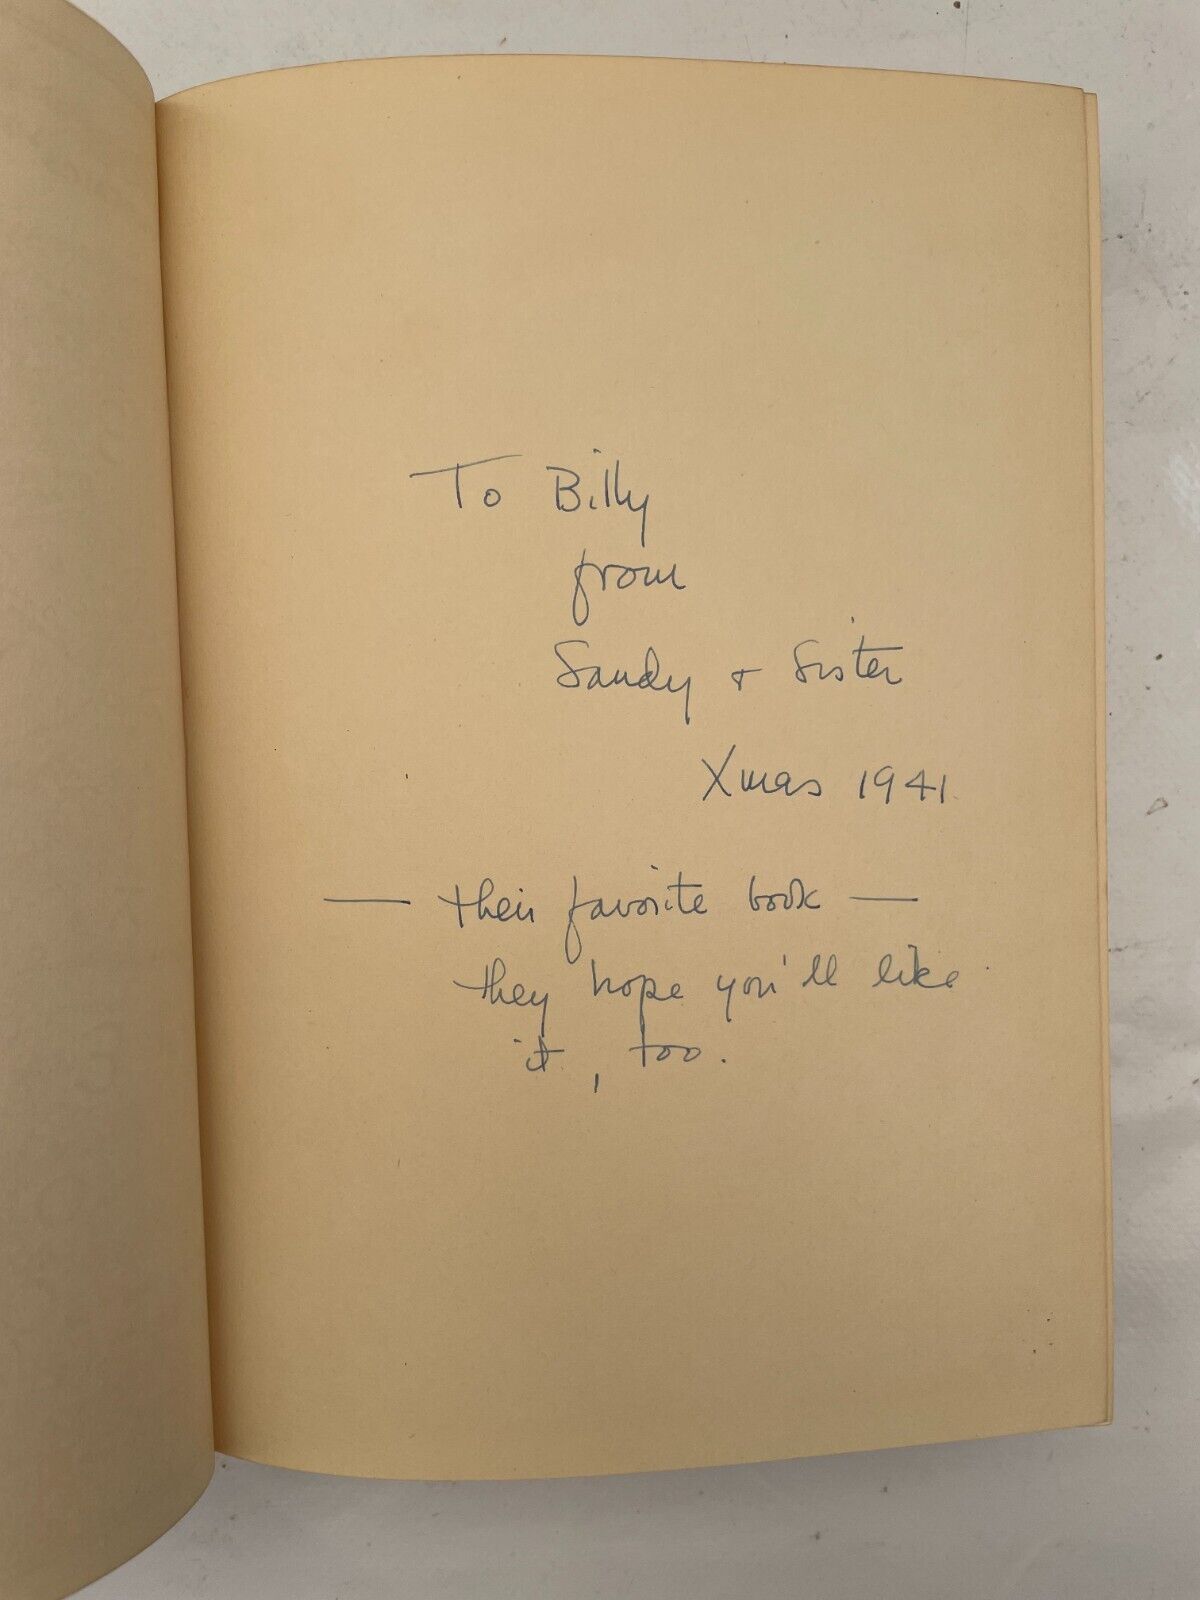 To Billy
from
Sandy + Sister
Xmas 1941
— their favorite book —
they hope you'll like
it, too.